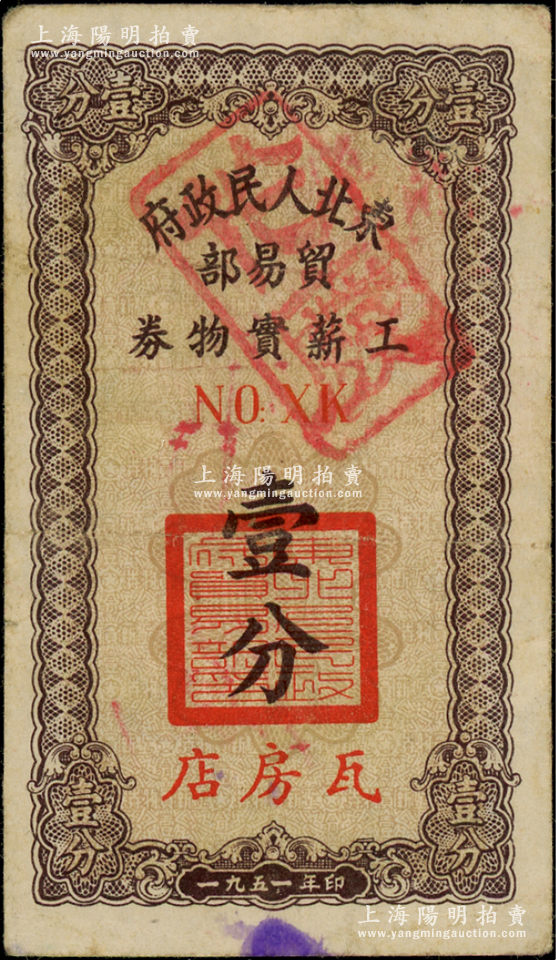 上海陽明拍賣
www.yangmingauction.com
壹分
壹分
東北人民政府
貿易部
工薪實物券
NO: XK
上海陽明拍賣
www.yangmingauction.com
壹分
瓦房店
壹分
壹分
一九五一年印
上海陽明拍賣
www.yangmingauction.com